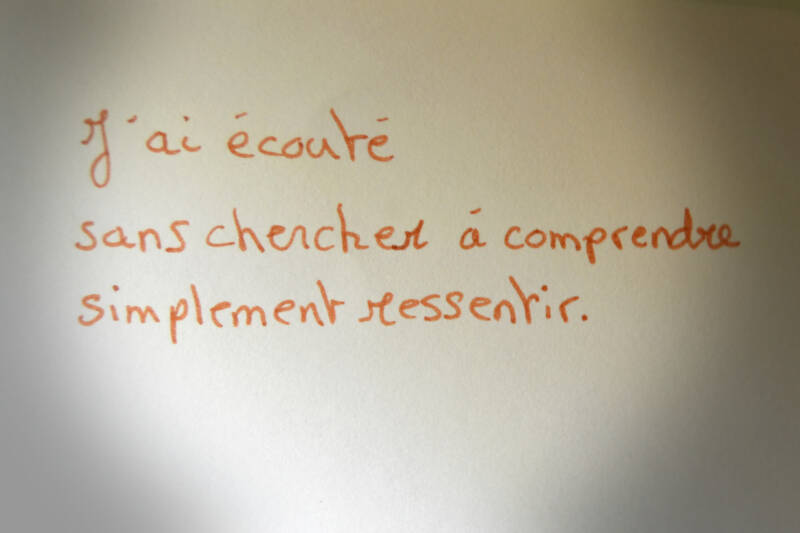 J'ai écouté
sans chercher à comprendre
simplement ressentir.